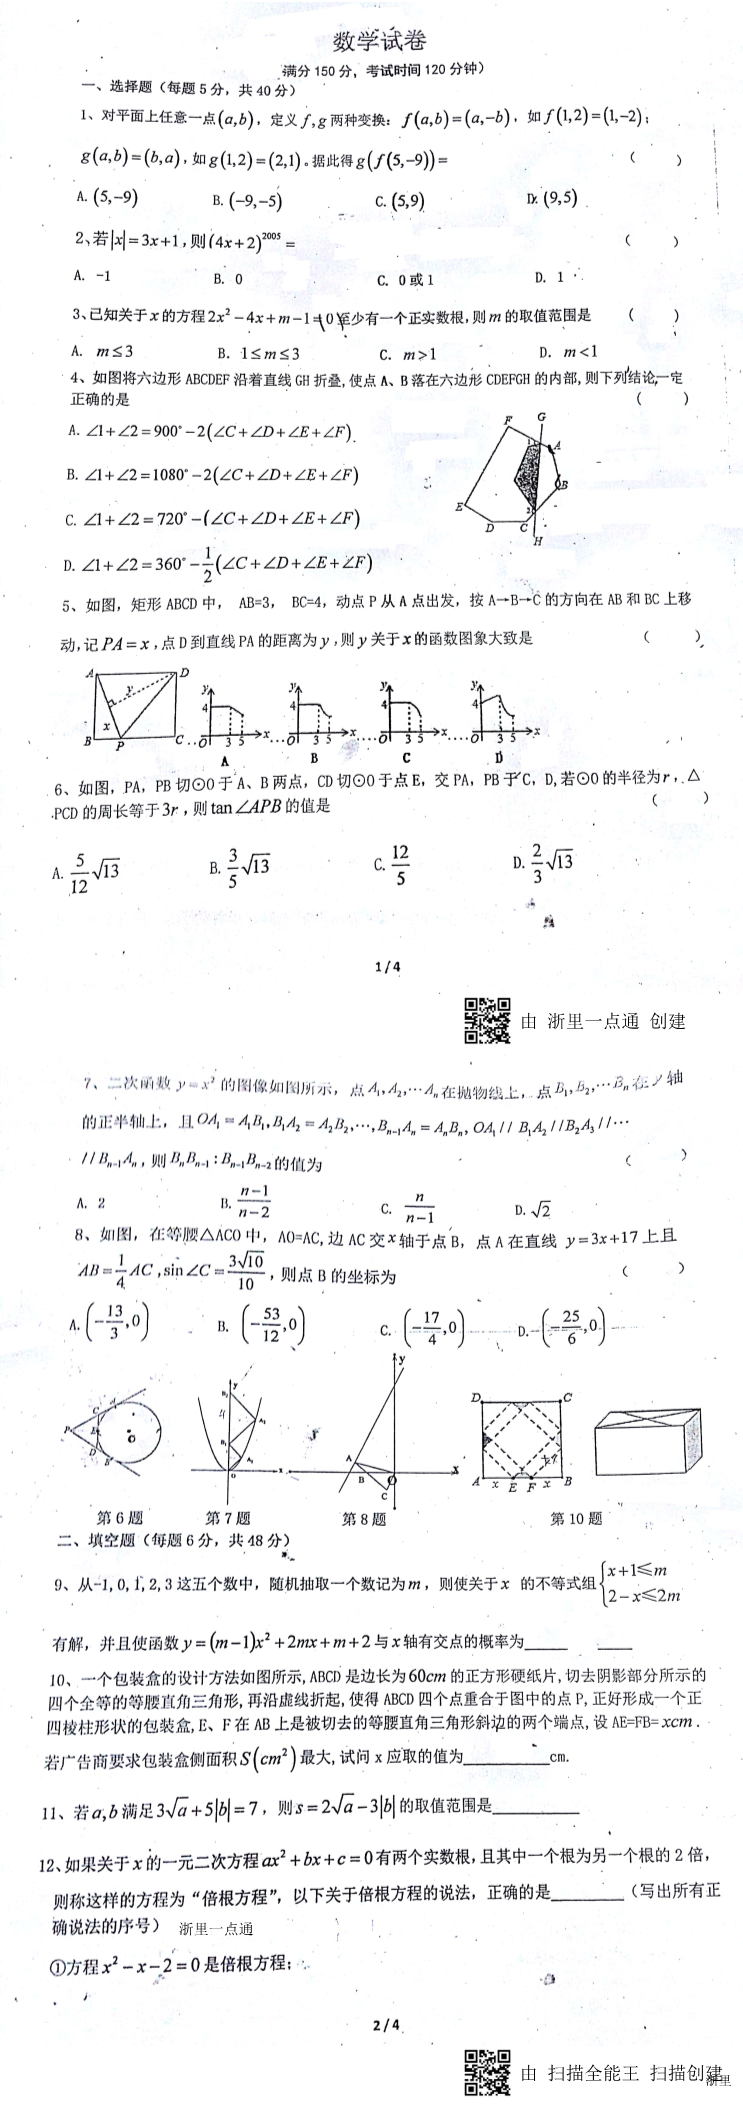 数学试卷
满分150分，考试时间120分钟）
一、选择题（每题5分，共40分）
1、对平面上任意一点(a,b)，定义f,g两种变换：f(a,b)=(a,−b)，如f(1,2)=(1,−2)；
g(a,b)=(b,a)，如g(1,2)=(2,1)。据此得g(f(5,−9))=（ ）
A. (5,−9) B. (−9,−5) C. (5,9) D. (9,5)
2、若|x|=3x+1，则(4x+2)²⁰⁰⁵=（ ）
A. -1 B. 0 C. 0或1 D. 1
3、已知关于x的方程2x²−4x+m−1=0至少有一个正实数根，则m的取值范围是（ ）
A. m≤3 B. 1≤m≤3 C. m>1 D. m<1
4、如图将六边形ABCDEF沿着直线GH折叠，使点A、B落在六边形CDEFGH的内部，则下列结论一定
正确的是（ ）
A. ∠1+∠2=900°−2(∠C+∠D+∠E+∠F)
B. ∠1+∠2=1080°−2(∠C+∠D+∠E+∠F)
C. ∠1+∠2=720°−(∠C+∠D+∠E+∠F)
D. ∠1+∠2=360°−1/2(∠C+∠D+∠E+∠F)
F G A B E D C H 1 2
5、如图，矩形ABCD中， AB=3， BC=4，动点P从A点出发，按A→B→C的方向在AB和BC上移
动，记PA=x，点D到直线PA的距离为y，则y关于x的函数图象大致是（ ）
A D y x B P C
y 4 O 3 5 x y 4 O 3 5 x y 4 O 3 5 x y 4 O 3 5 x
A B C D
6、如图，PA，PB切⊙O于A、B两点，CD切⊙O于点E，交PA，PB于C，D，若⊙O的半径为r，△
PCD的周长等于3r，则tan∠APB的值是（ ）
A. 5/12√13 B. 3/5√13 C. 12/5 D. 2/3√13
1/4
由 浙里一点通 创建
7、二次函数y=x²的图像如图所示，点A₁,A₂,⋯Aₙ在抛物线上，点B₁,B₂,⋯Bₙ在y轴
的正半轴上，且OA₁=A₁B₁,B₁A₂=A₂B₂,⋯,Bₙ₋₁Aₙ=AₙBₙ, OA₁//B₁A₂//B₂A₃//⋯
//Bₙ₋₁Aₙ，则BₙBₙ₋₁:Bₙ₋₁Bₙ₋₂的值为（ ）
A. 2 B. n−1/n−2 C. n/n−1 D. √2
8、如图，在等腰△ACO中，AO=AC，边AC交x轴于点B，点A在直线 y=3x+17上且
AB=1/4AC，sin∠C=3√10/10，则点B的坐标为（ ）
A. (−13/3,0) B. (−53/12,0) C. (−17/4,0) D. (−25/6,0)
第6题 第7题 第8题 第10题
二、填空题（每题6分，共48分）
9、从-1,0,1,2,3这五个数中，随机抽取一个数记为m，则使关于x 的不等式组{x+1≤m
2−x≤2m
有解，并且使函数y=(m−1)x²+2mx+m+2与x轴有交点的概率为_____
10、一个包装盒的设计方法如图所示，ABCD是边长为60cm的正方形硬纸片，切去阴影部分所示的
四个全等的等腰直角三角形，再沿虚线折起，使得ABCD四个点重合于图中的点P，正好形成一个正
四棱柱形状的包装盒，E、F在AB上是被切去的等腰直角三角形斜边的两个端点，设AE=FB=xcm．
若广告商要求包装盒侧面积S(cm²)最大，试问x应取的值为________cm.
11、若a,b满足3√a+5|b|=7，则s=2√a−3|b|的取值范围是________
12、如果关于x的一元二次方程ax²+bx+c=0有两个实数根，且其中一个根为另一个根的2倍，
则称这样的方程为“倍根方程”，以下关于倍根方程的说法，正确的是_______（写出所有正
确说法的序号） 浙里一点通
①方程x²−x−2=0是倍根方程；
2/4
由 扫描全能王 扫描创建
浙里